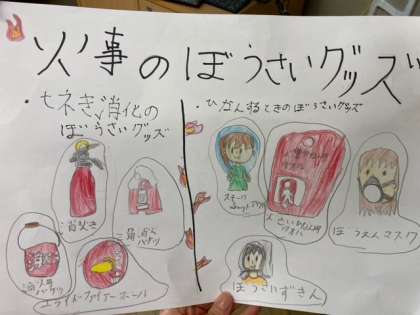 火事のぼうさいグッズ
・七ネき消化の
ぼうさいグッズ
・ひなんするときのぼうさいグッズ
消火き
三角消火バケツ
消火バケツ
エライドファイアーボール
スモーク
ぼうえんマスク
ぼうさいずきん